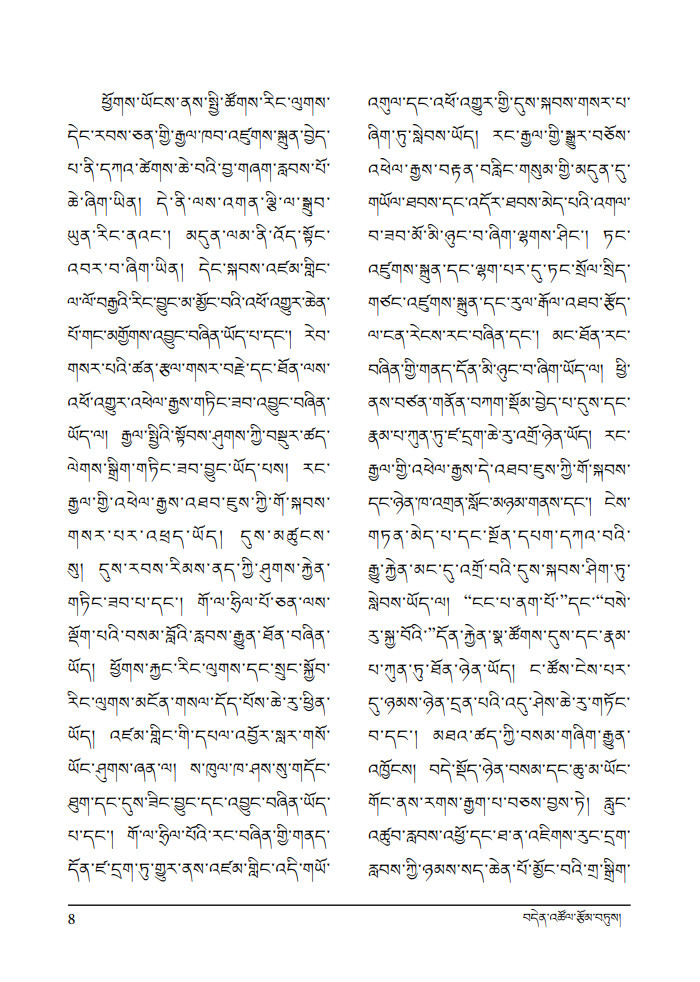 ཕྱོགས་ཡོངས་ནས་སྤྱི་ཚོགས་རིང་ལུགས་
དེང་རབས་ཅན་གྱི་རྒྱལ་ཁབ་འཛུགས་སྐྲུན་བྱེད་
པ་ནི་དཀའ་ཚེགས་ཆེ་བའི་བྱ་གཞག་རླབས་པོ་
ཆེ་ཞིག་ཡིན། དེ་ནི་ལས་འགན་ལྕི་ལ་སྒྲུབ་
ཡུན་རིང་ནའང་། མདུན་ལམ་ནི་འོད་སྟོང་
འབར་བ་ཞིག་ཡིན། དེང་སྐབས་འཛམ་གླིང་
ལ་ལོ་བརྒྱའི་རིང་བྱུང་མ་མྱོང་བའི་འཕོ་འགྱུར་ཆེན་
པོ་གང་མགྱོགས་འབྱུང་བཞིན་ཡོད་པ་དང་། རེབ་
གསར་པའི་ཚན་རྩལ་གསར་བརྗེ་དང་ཐོན་ལས་
འཕོ་འགྱུར་འཕེལ་རྒྱས་གཏིང་ཟབ་འབྱུང་བཞིན་
ཡོད་ལ། རྒྱལ་སྤྱིའི་སྟོབས་ཤུགས་ཀྱི་བསྡུར་ཚད་
ལེགས་སྒྲིག་གཏིང་ཟབ་བྱུང་ཡོད་པས། རང་
རྒྱལ་གྱི་འཕེལ་རྒྱས་འཐབ་ཇུས་ཀྱི་གོ་སྐབས་
གསར་པར་འཕྲད་ཡོད། དུས་མཚུངས་
སུ། དུས་རབས་རིམས་ནད་ཀྱི་ཤུགས་རྐྱེན་
གཏིང་ཟབ་པ་དང་། གོ་ལ་ཧྲིལ་པོ་ཅན་ལས་
ལྡོག་པའི་བསམ་བློའི་རླབས་རྒྱུན་ཐོན་བཞིན་
ཡོད། ཕྱོགས་རྐྱང་རིང་ལུགས་དང་སྲུང་སྐྱོབ་
རིང་ལུགས་མངོན་གསལ་དོད་པོས་ཆེ་རུ་ཕྱིན་
ཡོད། འཛམ་གླིང་གི་དཔལ་འབྱོར་སླར་གསོ་
ཡོང་ཤུགས་ཞན་ལ། ས་ཁུལ་ཁ་ཤས་སུ་གདོང་
ཐུག་དང་དུས་ཟིང་བྱུང་དང་འབྱུང་བཞིན་ཡོད་
པ་དང་། གོ་ལ་ཧྲིལ་པོའི་རང་བཞིན་གྱི་གནད་
དོན་ཇ་དྲག་ཏུ་གྱུར་ནས་འཛམ་གླིང་འདི་གཡོ་
འགུལ་དང་འཕོ་འགྱུར་གྱི་དུས་སྐབས་གསར་པ་
ཞིག་ཏུ་སླེབས་ཡོད། རང་རྒྱལ་གྱི་སྒྱུར་བཅོས་
འཕེལ་རྒྱས་བརྟན་བརླིང་གསུམ་གྱི་མདུན་དུ་
གཡོལ་ཐབས་དང་འདོར་ཐབས་མེད་པའི་འགལ་
བ་ཟབ་མོ་མི་ཉུང་བ་ཞིག་ལྷགས་ཤིང་། ཏང་
འཛུགས་སྐྲུན་དང་ལྷག་པར་དུ་ཏང་སྲོལ་སྲིད་
གཙང་འཛུགས་སྐྲུན་དང་རུལ་རྒོལ་འཐབ་རྩོད་
ལ་ངན་རེངས་རང་བཞིན་དང་། མང་ཐོན་རང་
བཞིན་གྱི་གནད་དོན་མི་ཉུང་བ་ཞིག་ཡོད་ལ། ཕྱི་
ནས་བཙན་གནོན་བཀག་སྡོམ་བྱེད་པ་དུས་དང་
རྣམ་པ་ཀུན་ཏུ་ཇ་དྲག་ཆེ་རུ་འགྲོ་ཉེན་ཡོད། རང་
རྒྱལ་གྱི་འཕེལ་རྒྱས་དེ་འཐབ་ཇུས་ཀྱི་གོ་སྐབས་
དང་ཉེན་ཁ་འགྲན་སློང་མཉམ་གནས་དང་། ངེས་
གཏན་མེད་པ་དང་སྔོན་དཔག་དཀའ་བའི་
རྒྱུ་རྐྱེན་མང་དུ་འགྲོ་བའི་དུས་སྐབས་ཤིག་ཏུ་
སླེབས་ཡོད་ལ། “ངང་པ་ནག་པོ་”དང་“བསེ་
རུ་སྐྱ་བོའི་”དོན་རྐྱེན་སྣ་ཚོགས་དུས་དང་རྣམ་
པ་ཀུན་ཏུ་ཐོན་ཉེན་ཡོད། ང་ཚོས་ངེས་པར་
དུ་ཉམས་ཉེན་དྲན་པའི་འདུ་ཤེས་ཆེ་རུ་གཏོང་
བ་དང་། མཐའ་ཚད་ཀྱི་བསམ་གཞིག་རྒྱུན་
འཁྱོངས། བདེ་སྡོད་ཉེན་བསམ་དང་ཆུ་མ་ཡོང་
གོང་ནས་རགས་རྒྱག་པ་བཅས་བྱས་ཏེ། རླུང་
འཚུབ་རླབས་འཕྱོ་དང་ཐ་ན་འཇིགས་རུང་དྲག་
རླབས་ཀྱི་ཉམས་སད་ཆེན་པོ་མྱོང་བའི་གྲ་སྒྲིག་
8 བདེན་འཚོལ་རྩོམ་བཏུས།